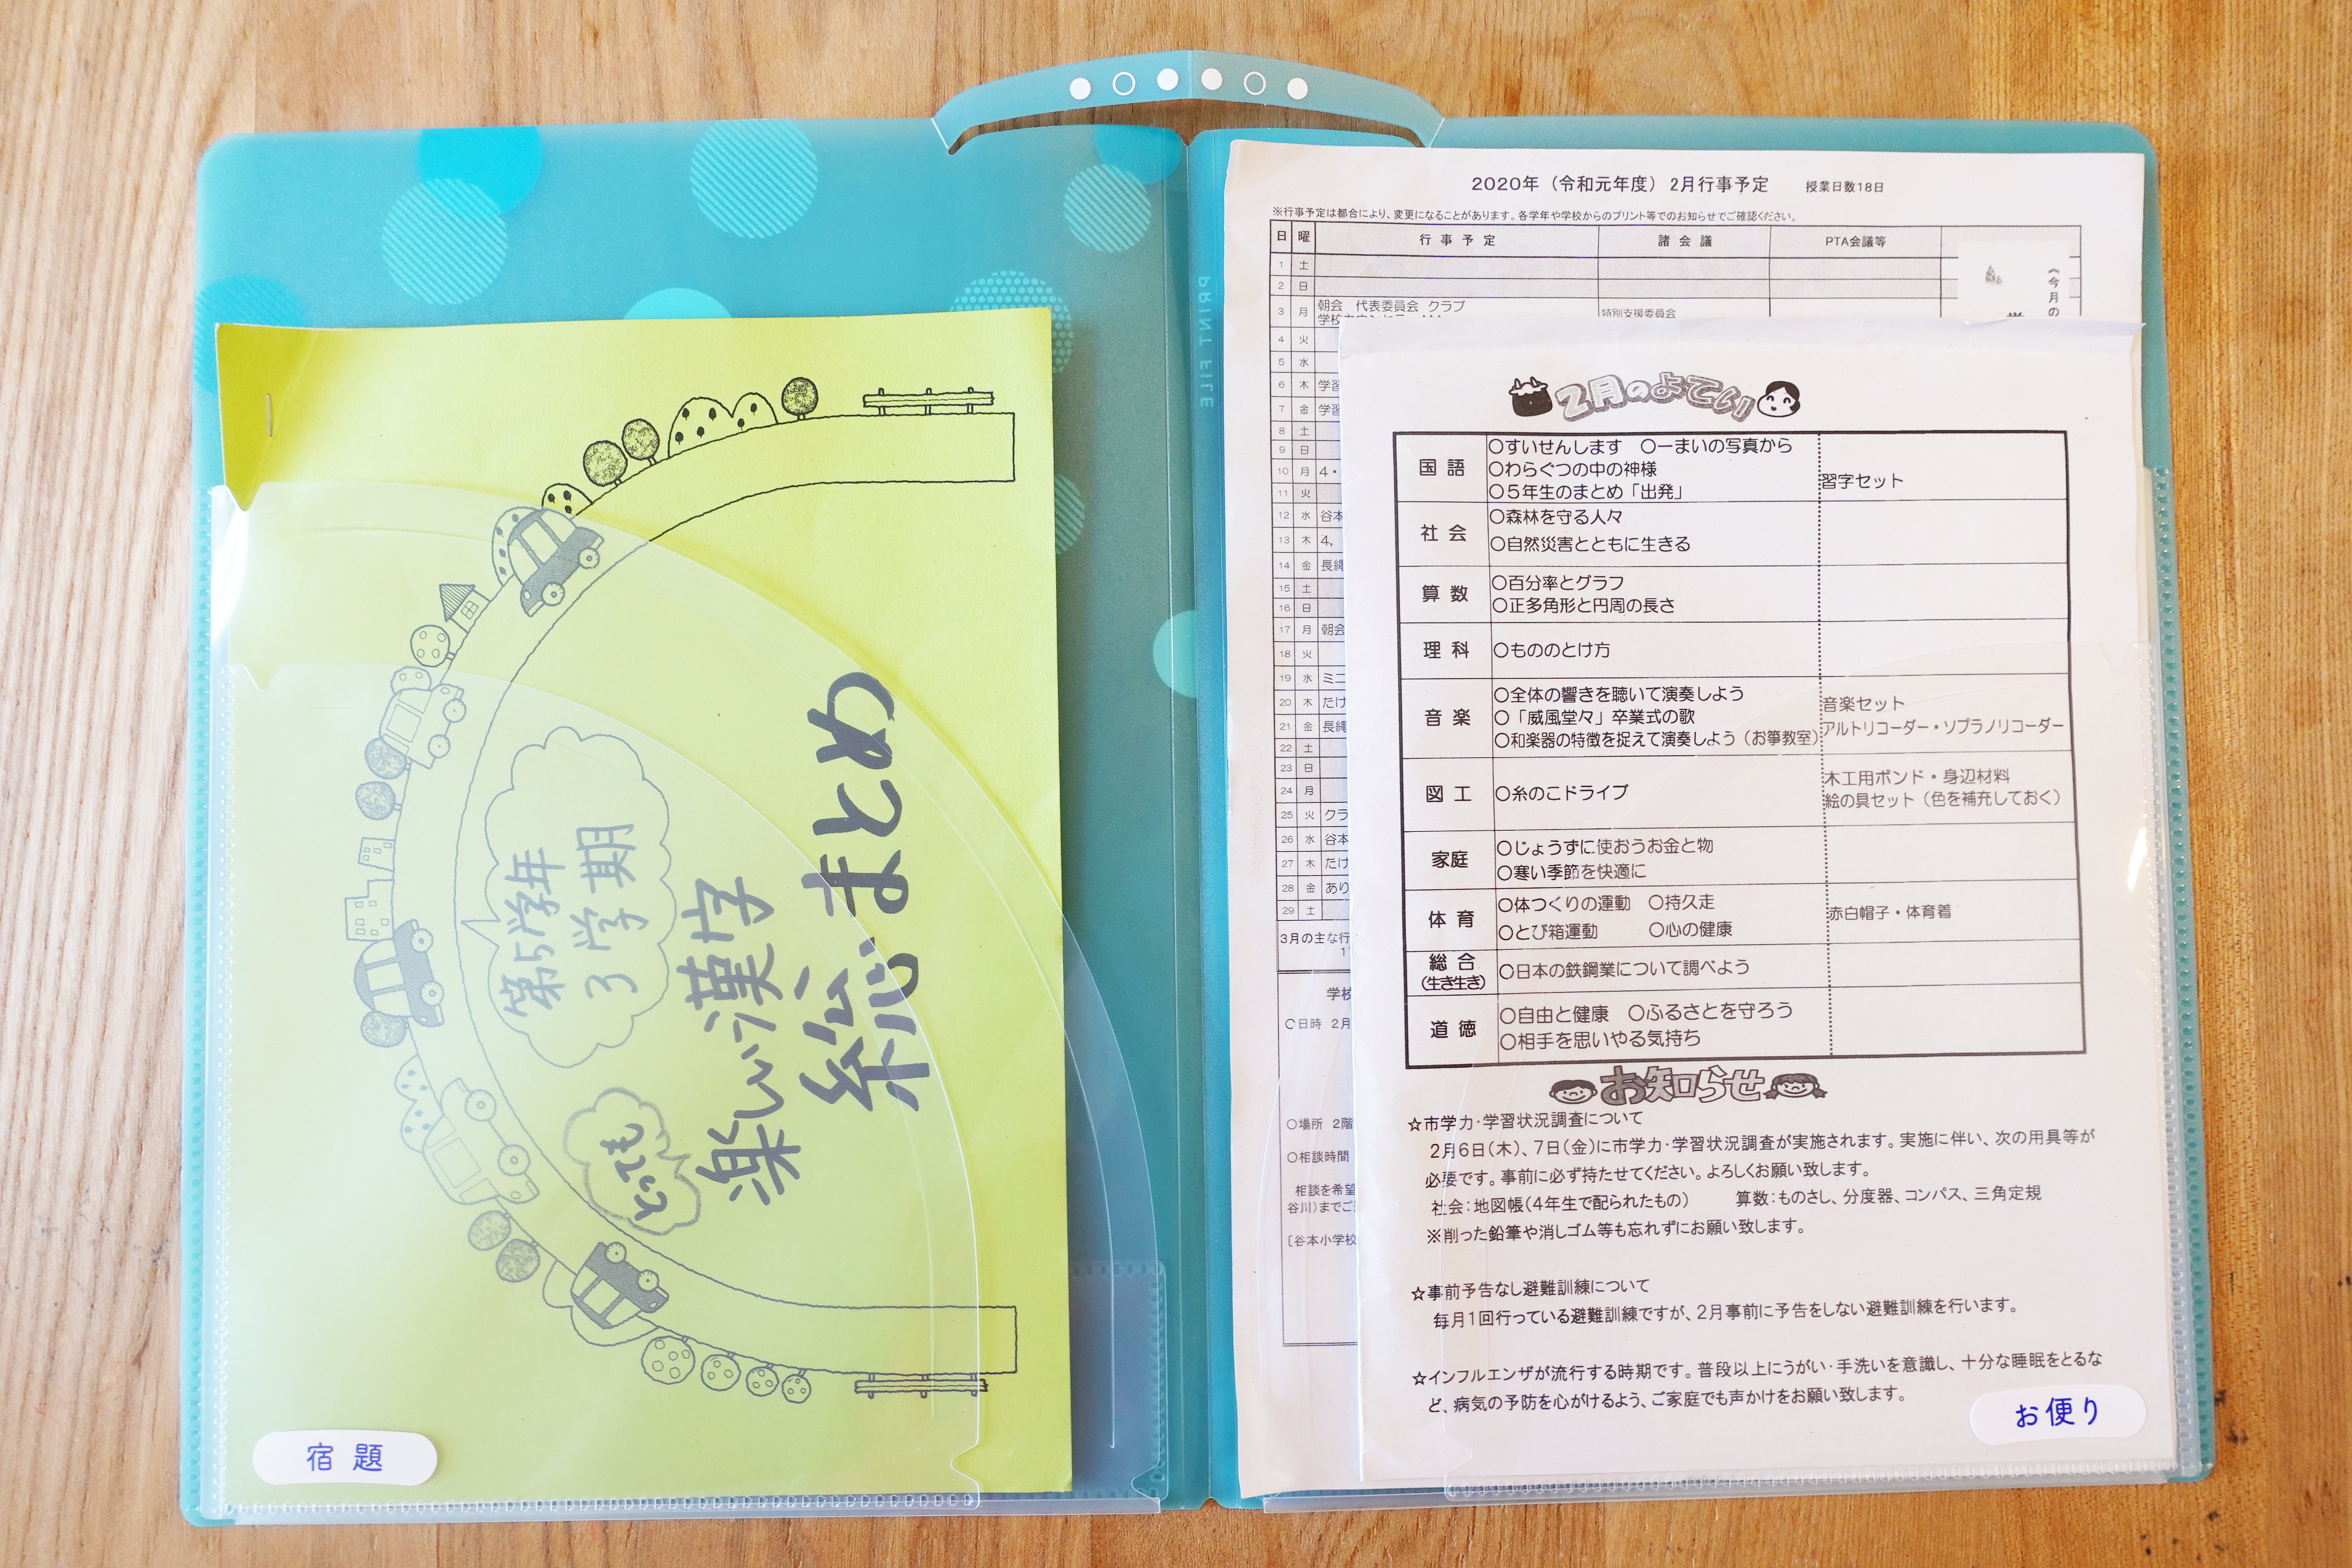 PRINT FILE
第5学年
3学期
もくじ
楽しい漢字
総まとめ
宿題
2020年（令和元年度）2月行事予定 授業日数18日
※行事予定は都合により、変更になることがあります。各学年や学校からのプリント等でのお知らせでご確認ください。
日 曜 行事予定 諸会議 PTA会議等
《今月の
1 土
2 日
3 月 朝会 代表委員会 クラブ 特別支援委員会
4 火
5 水
6 木 学習
7 金 学習
8 土
9 日
10 月 4・
11 火
12 水 谷本
13 木 4,
14 金 長縄
15 土
16 日
17 月 朝会
18 火
19 水 ミニ
20 木 たけ
21 金 長縄
22 土
23 日
24 月
25 火 クラ
26 水 谷本
27 木 たけ
28 金 あり
29 土
3月の主な行
学校
〇日時 2月
〇場所 2階
〇相談時間
相談を希望
谷川）までご
〔谷本小学校
2月のよてい
国語 〇すいせんします 〇一まいの写真から
〇わらぐつの中の神様
〇5年生のまとめ「出発」
習字セット
社会 〇森林を守る人々
〇自然災害とともに生きる
算数 〇百分率とグラフ
〇正多角形と円周の長さ
理科 〇もののとけ方
音楽 〇全体の響きを聴いて演奏しよう
〇「威風堂々」卒業式の歌
〇和楽器の特徴を捉えて演奏しよう（お箏教室）
音楽セット
アルトリコーダー・ソプラノリコーダー
図工 〇糸のこドライブ
木工用ボンド・身辺材料
絵の具セット（色を補充しておく）
家庭 〇じょうずに使おうお金と物
〇寒い季節を快適に
体育 〇体つくりの運動 〇持久走
〇とび箱運動 〇心の健康
赤白帽子・体育着
総合
（生き生き） 〇日本の鉄鋼業について調べよう
道徳 〇自由と健康 〇ふるさとを守ろう
〇相手を思いやる気持ち
お知らせ
☆市学力・学習状況調査について
2月6日（木）、7日（金）に市学力・学習状況調査が実施されます。実施に伴い、次の用具等が
必要です。事前に必ず持たせてください。よろしくお願い致します。
社会：地図帳（4年生で配られたもの） 算数：ものさし、分度器、コンパス、三角定規
※削った鉛筆や消しゴム等も忘れずにお願い致します。
☆事前予告なし避難訓練について
毎月1回行っている避難訓練ですが、2月事前に予告をしない避難訓練を行います。
☆インフルエンザが流行する時期です。普段以上にうがい・手洗いを意識し、十分な睡眠をとるな
ど、病気の予防を心がけるよう、ご家庭でも声かけをお願い致します。
お便り